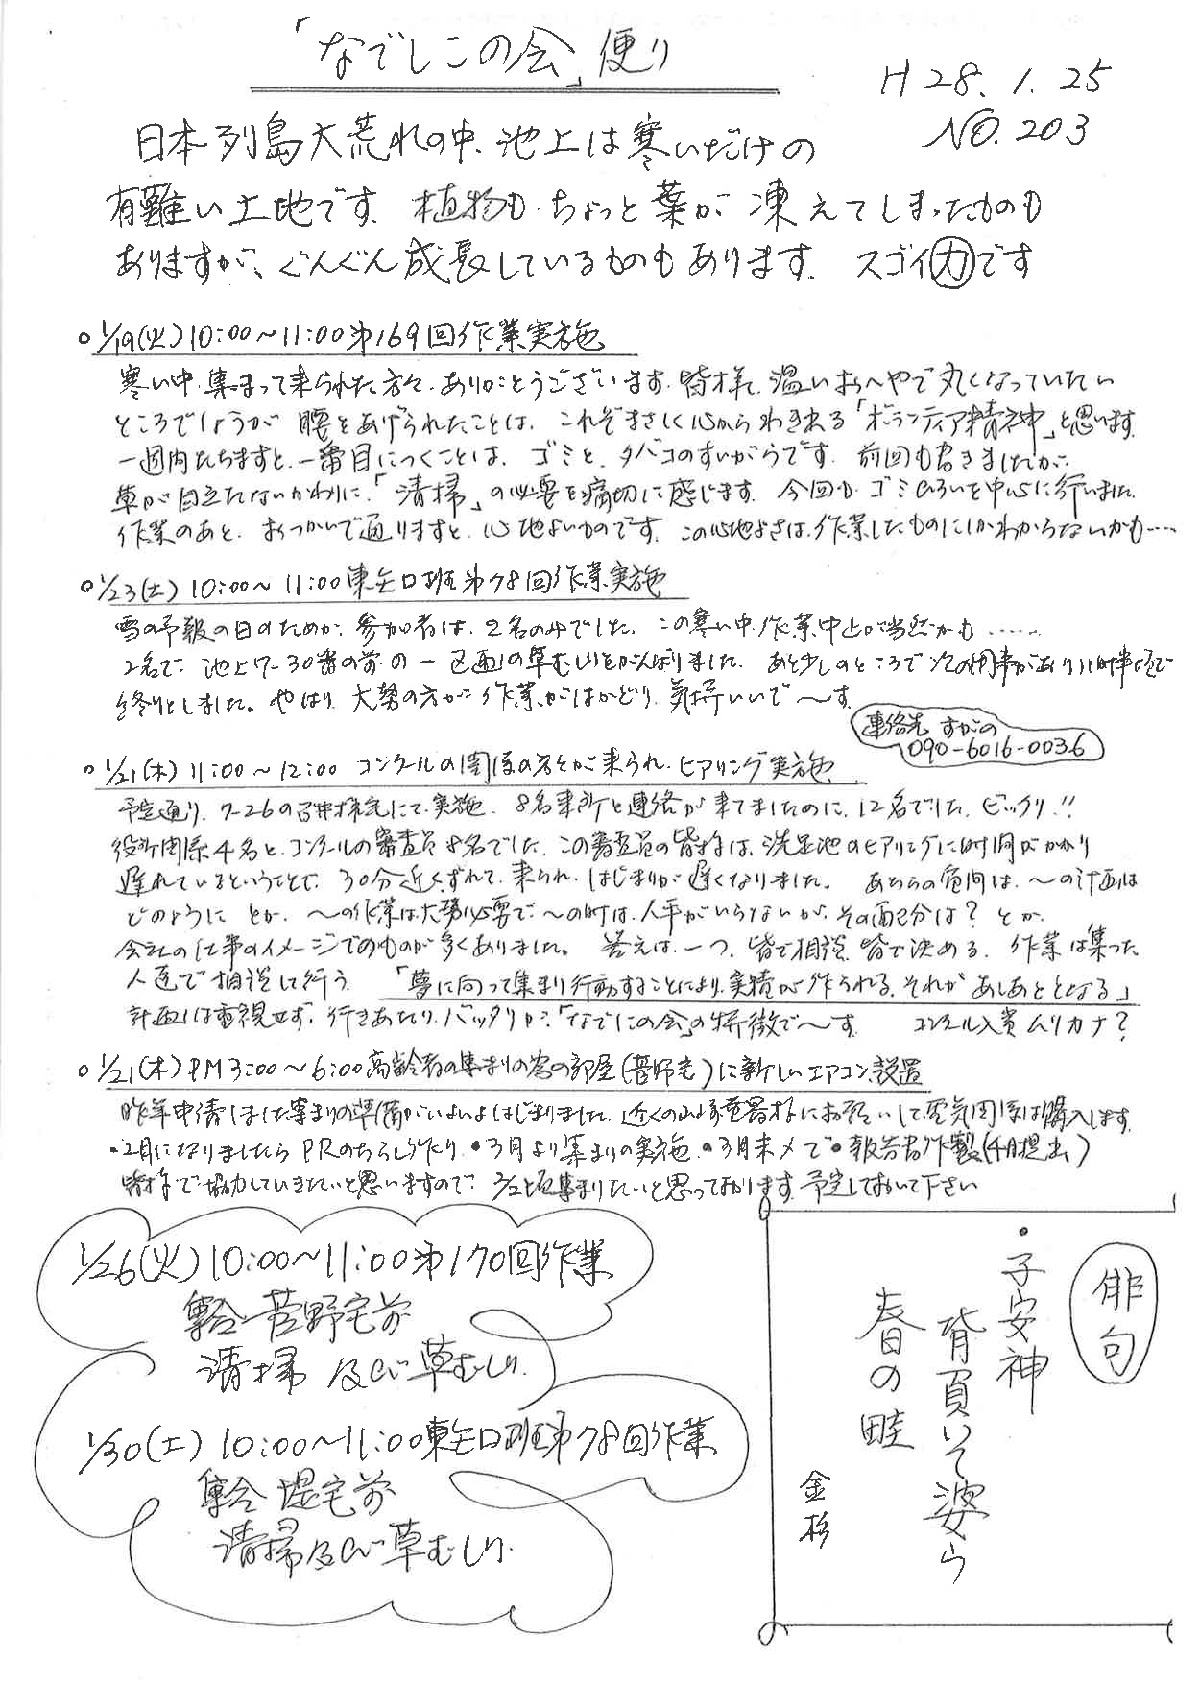 「なでしこの会」便り
H28.1.25
NO.203
日本列島大荒れの中、池上は寒いだけの
有難い土地です。植物も、ちょっと葉が凍えてしまったものも
ありますが、ぐんぐん成長しているものもあります。スゴイ力です
○1/19(火)10:00〜11:00第169回作業実施
寒い中、集まって来られた方々、ありがとうございます。皆様、温いおへやで丸くなっていたい
ところでしょうが、腰をあげられたことは、これぞまさしく心からわき来る「ボランティア精神」と思います。
一週間たちますと、一番目につくことは、ゴミと、タバコのすいがらです。前回も書きましたが、
草が目立たないかわりに、「清掃」の必要を痛切に感じます。今回も、ゴミひろいを中心に行いました。
作業のあと、おつかいで通りますと、心地よいものです。この心地よさは、作業したものにしかわからないかも……
○1/23(土)10:00〜11:00東 口班第78回作業実施
雪の予報の日のためか、参加者は、2名のみでした。この寒い中、作業中止が当然かも……
2名で、池上7-30番の前の一区画の草むしりをがんばりました。あと少しのところで次の用事があり
終りとしました。やはり、大勢の方が、作業がはかどり、気持いいで〜す。
連絡先 すがの
090-6016-0036
○1/21(木)11:00〜12:00 コンクールの関係の方々が来られ、ヒアリング実施
予定通り、7-26の 様宅にて、実施。8名来所と連絡が来てましたのに、12名でした。ビックリ!!
役所関係4名と、コンクールの審査員8名でした。この審査員の皆様は、洗足池のヒアリングに時間がかかり
遅れているということで、30分近くずれて、来られ、はじまりが遅くなりました。あちらの質問は、〜の計画は
どのように とか、〜の作業は大勢必要で、〜の時は、人手がいらないが、その配分は?とか、
会社の仕事のイメージでのものが多くありました。答えは、一つ、皆で相談、皆で決める。作業は集った
人達で相談して行う。「夢に向って集まり行動することにより、実績が作られる。それが あしあととなる」
計画は重視せず、行きあたり、バッタリが、「なでしこの会」の特徴で〜す。コンクール入賞ムリカナ?
○1/21(木)PM3:00〜6:00高齢者の集まりの 部屋(菅野宅)に新しいエアコン設置
昨年申請しました集まりの準備がいよいよはじまりました。近くの山 電器様にお願いして電気関係は購入します。
・2月になりましたらPRのちらし作たり ・3月より集まりの実施 ・3月末〆で ・報告書作製(4月提出)
皆様で協力していきたいと思いますので、2/2 頃集まりたいと思っております。予定しておいて下さい
1/26(火)10:00〜11:00第170回作業
集合 菅野宅前
清掃 及び 草むしり
1/30(土)10:00〜11:00東 口班第78回作業
集合 堤宅前
清掃及び草むしり
俳句
・子安神
背負いて婆ら
春の畦
金杉